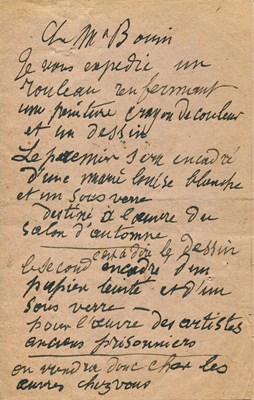 Ch Mr Bouin
Je vous expedie un
rouleau renfermant
une peinture crayon de couleur
et un dessin
Le premier sera encadré
d'une marie louise blanche
et un sous verre
destiné à l'œuvre du
salon d'automne
c'est a dire le dessin
le second encadré d'un
papier teinté et d'un
sous verre —
pour l'œuvre des artistes
anciens prisonniers
on viendra donc cher les
œuvres chez vous